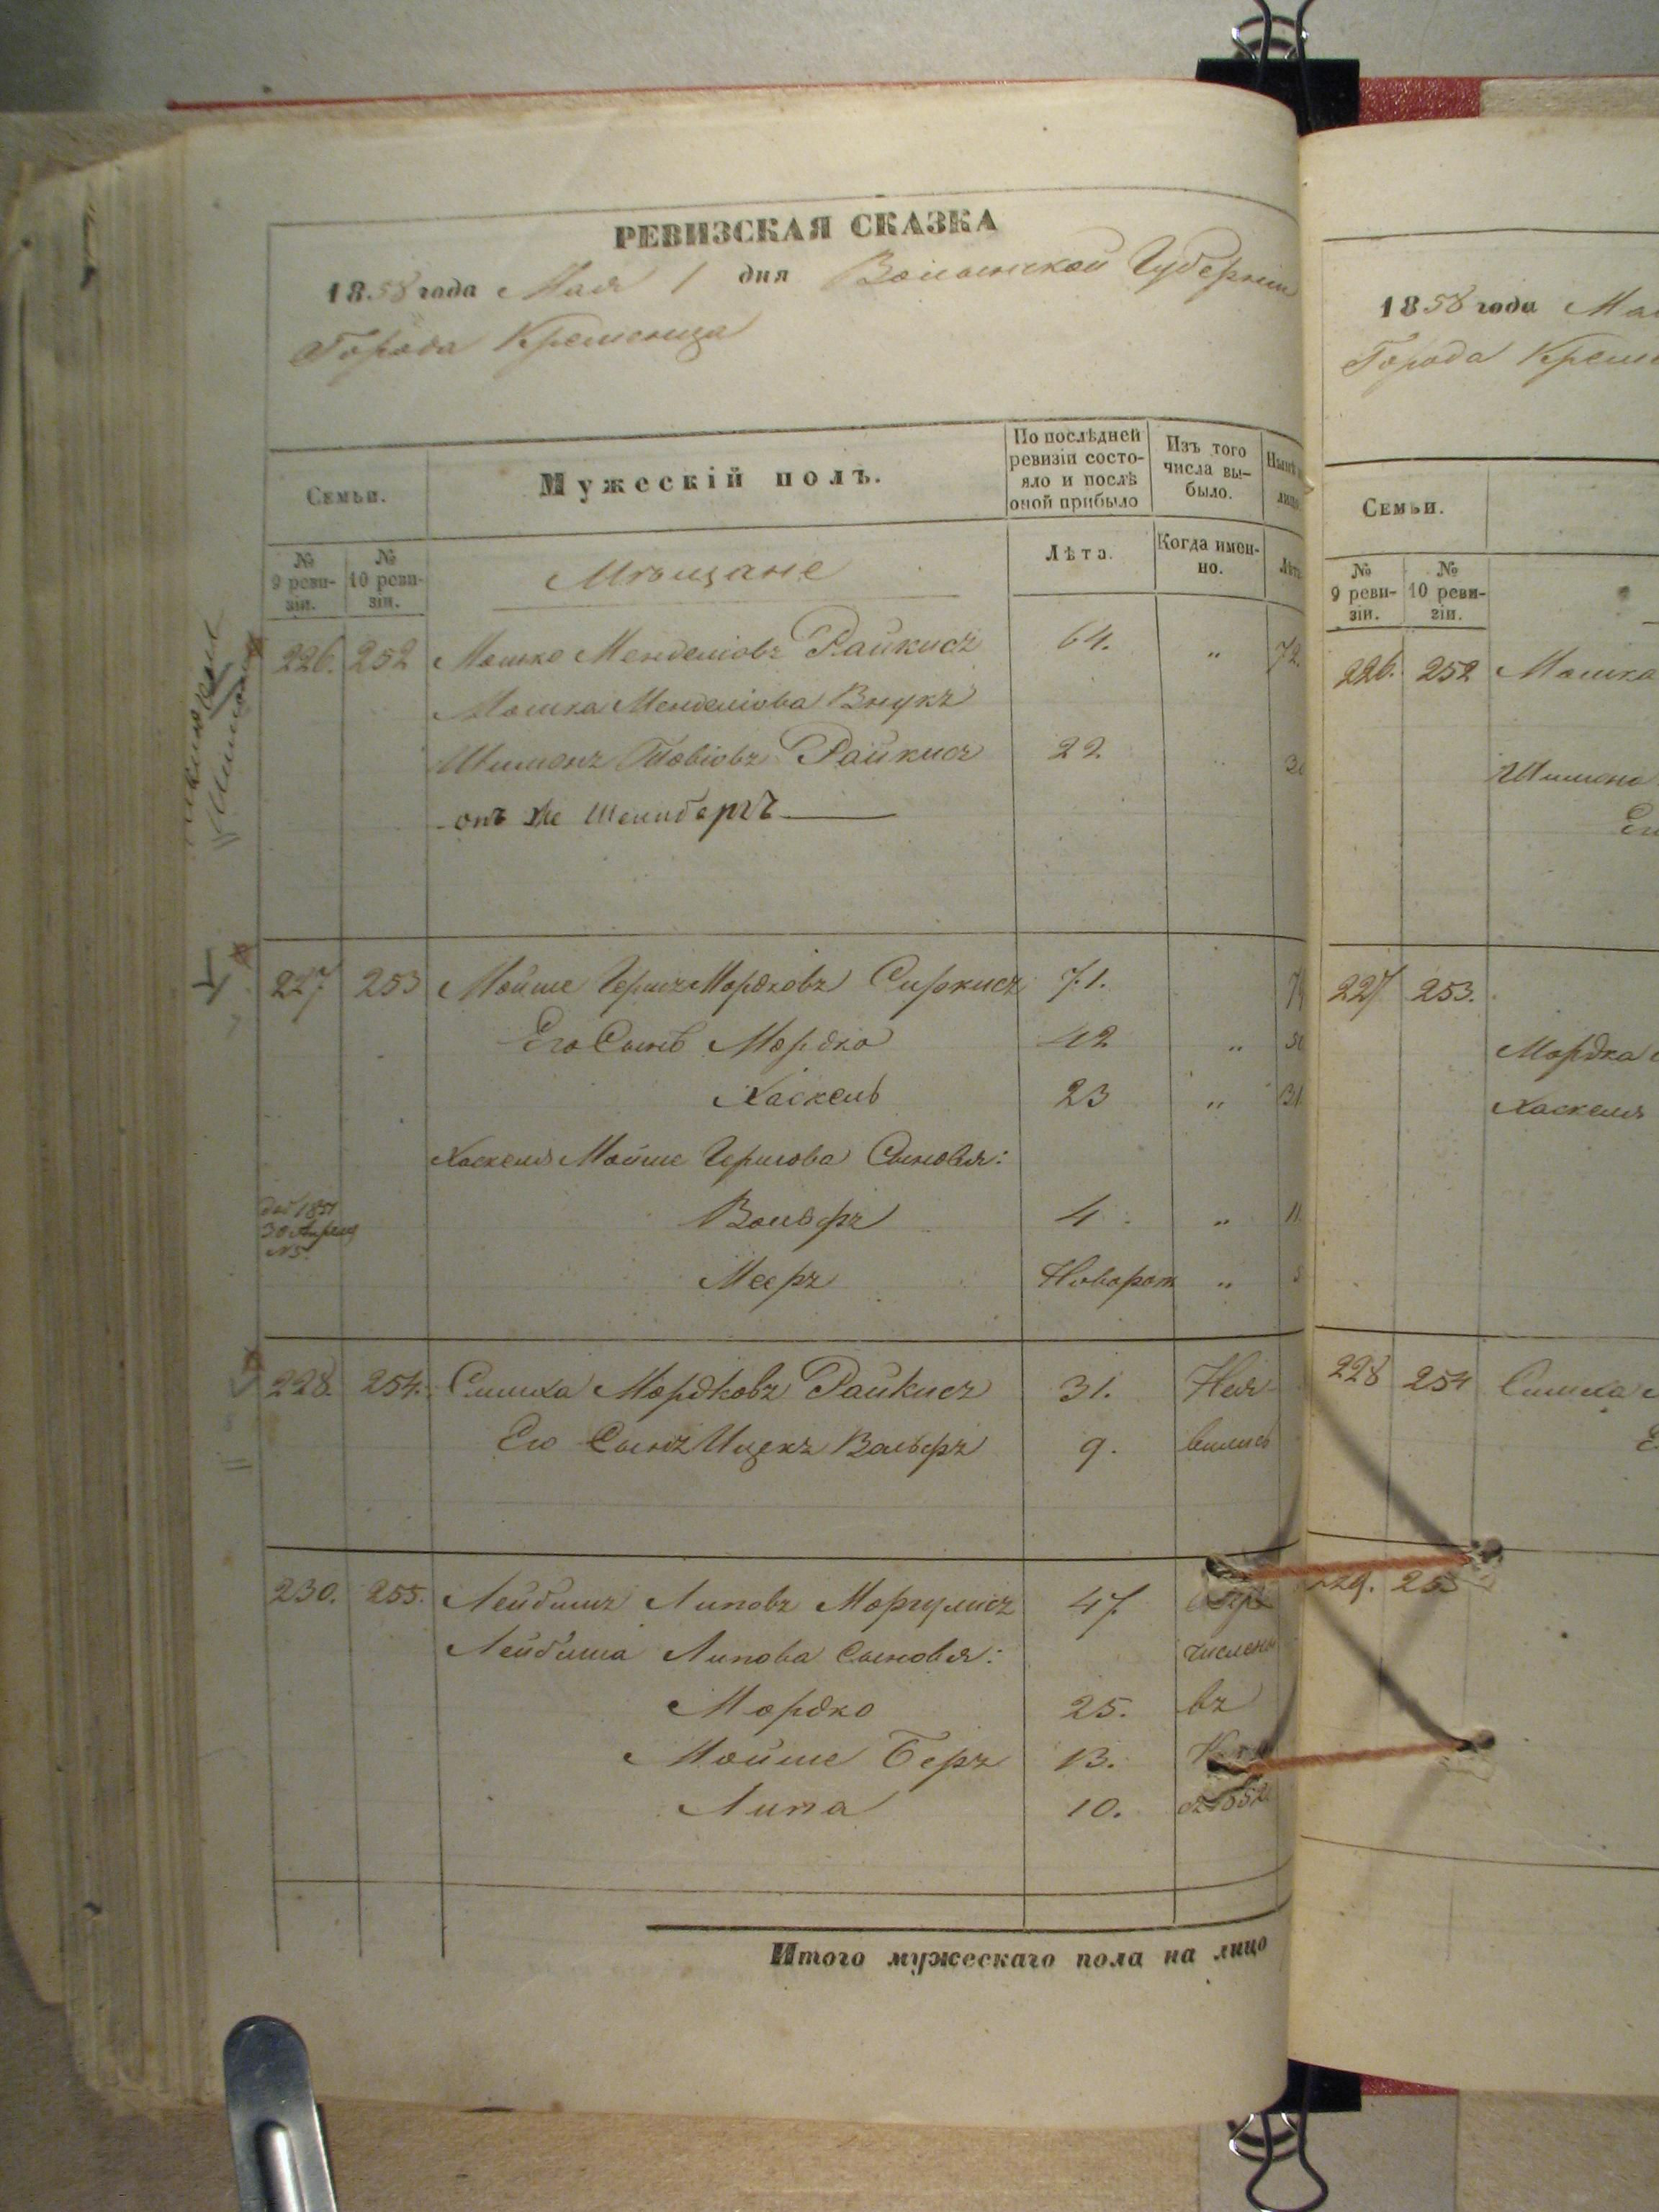 РЕВИЗСКАЯ СКАЗКА
1858 года Мая 1 дня Волынской Губернии
Города Кременца
Семьи.
Мужескій полъ.
По послѣдней ревизіи состо-
яло и послѣ
оной прибыло
Изъ того
числа вы-
было.
№
9 реви-
зіи.
№
10 реви-
зіи.
Мѣщане
Лѣта.
Когда имен-
но.
226. 252 Мошко Менделіовъ Райкисъ 64. „ 72.
Мошка Менделіова Внукъ
Шимонъ Товіовъ Райкисъ 22 „
онъ же Шеинбергъ
227 253 Мойше Гершъ Мордковъ Сиркисъ 71.
Его Сынъ Мордко 42 „ 50
Хаскель 23 „ 31
Хаскеля Мойше Гершова Сыновья:
Вольфъ 4 „
Мееръ Новорож „
30 Апреля
228. 254. Симха Мордковъ Райкисъ 31. Нея-
Его Сынъ Ицекъ Вольфъ 9. вились
230. 255. Лейбишъ Липовъ Моргулисъ 47
Лейбиша Липова Сыновья: числены
Мордко 25. въ
Мойше Беръ 13.
Липа 10.
Итого мужескаго пола на лицо
1858 года
Города
Семьи.
№
9 реви-
зіи.
№
10 реви-
зіи.
226. 252 Мошка
Шимона
227 253.
Мордка
Хаскеля
228 254 Симха